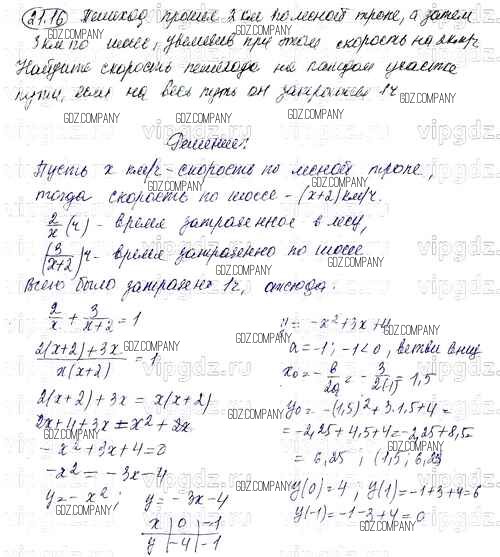 21.16 Пешеход прошел 2 км по лесной тропе, а затем
3 км по шоссе, увеличив при этом скорость на 2 км/ч
Найдите скорость пешехода на каждом участке
пути, если на весь путь он затратил 1 ч
Решение:
Пусть x км/ч - скорость по лесной тропе,
тогда скорость по шоссе - (x+2) км/ч.
2/x (ч) - время затраченное в лесу,
(3/(x+2)) ч - время затрачено по шоссе
Всего было затрачено 1 ч, отсюда:
2/x + 3/(x+2) = 1
(2(x+2)+3x)/(x(x+2)) = 1
2(x+2)+3x = x(x+2)
2x+4+3x = x²+2x
-x²+3x+4=0
-x² = -3x-4
y = -x²; y = -3x-4
x | 0 | -1
y | -4 | -1
y = -x²+3x+4
a = -1; -1<0, ветви вниз
x₀ = -b/2a = -3/2(-1) = 1,5
y₀ = -(1,5)²+3·1,5+4 =
= -2,25+4,5+4 = -2,25+8,5 =
= 6,25; (1,5; 6,25)
y(0) = 4, y(1) = -1+3+4=6
y(-1) = -1-3+4=0
GDZ.COMPANY
vipgdz.ru